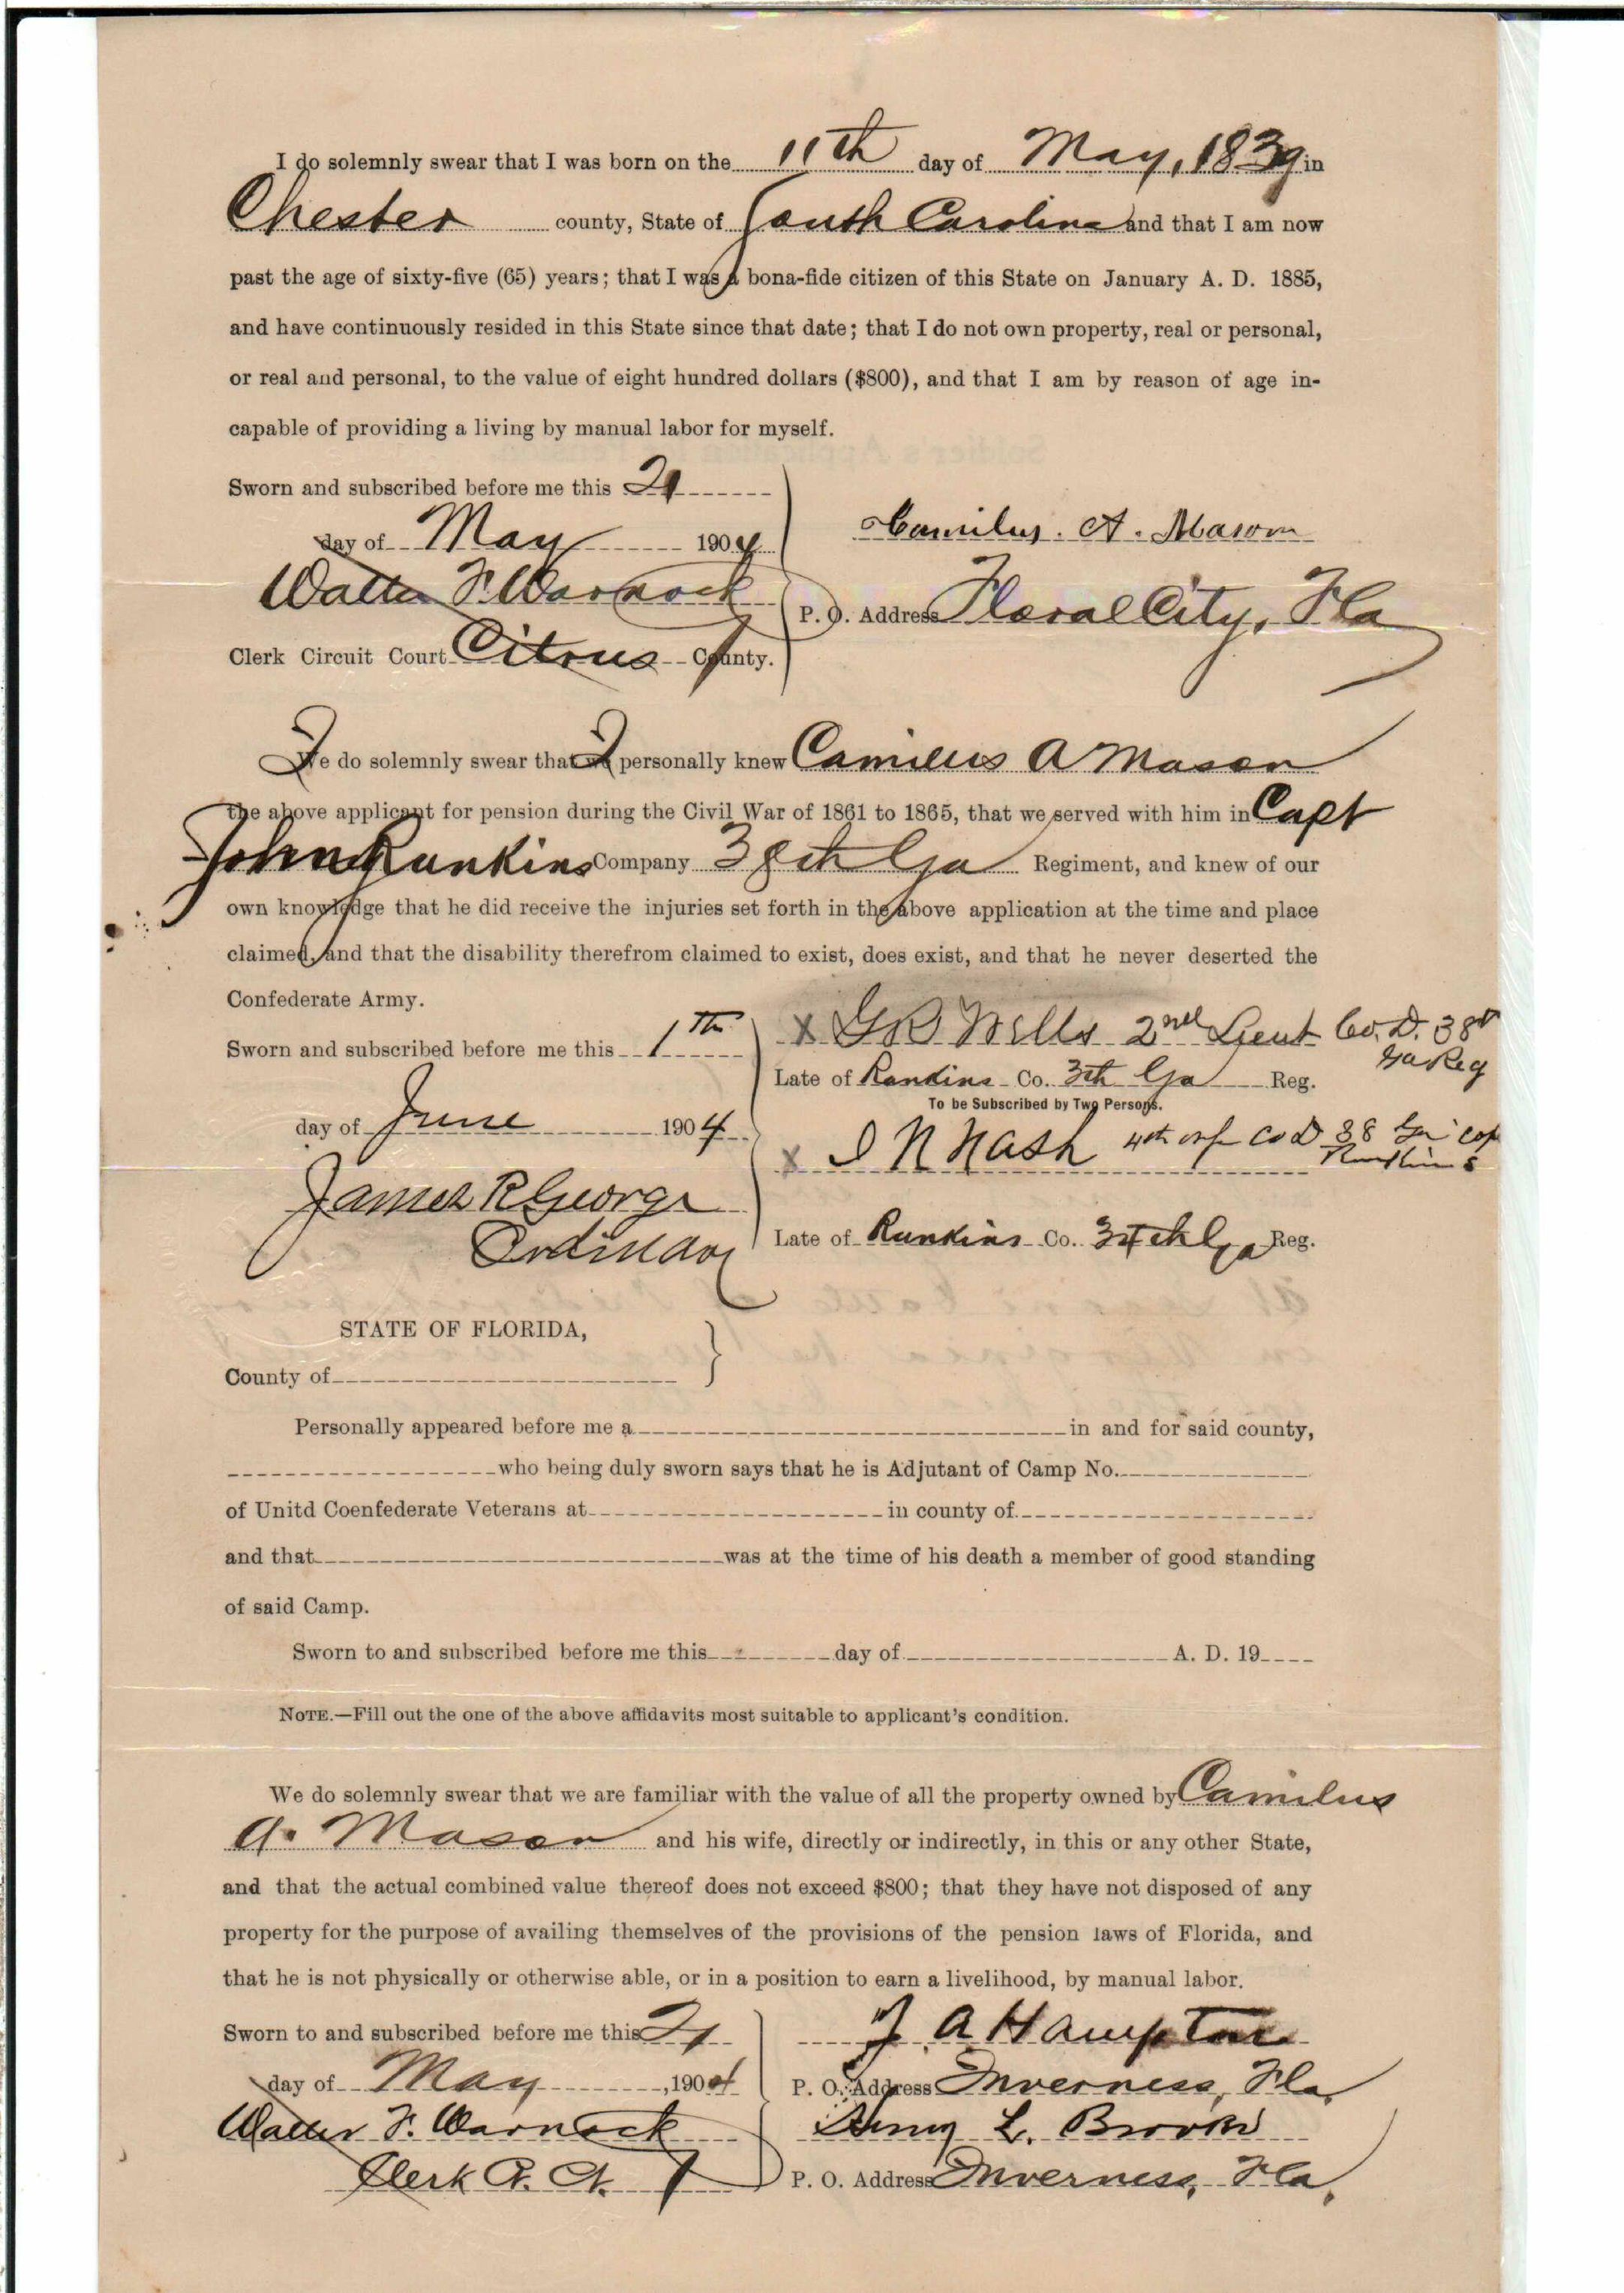 I do solemnly swear that I was born on the 11th day of May, 1839 in
Chester county, State of South Carolina and that I am now
past the age of sixty-five (65) years; that I was a bona-fide citizen of this State on January A. D. 1885,
and have continuously resided in this State since that date; that I do not own property, real or personal,
or real and personal, to the value of eight hundred dollars ($800), and that I am by reason of age in-
capable of providing a living by manual labor for myself.
Sworn and subscribed before me this 21
day of May 1904
Camilus. A. Mason
Walter F. Warnock
P. O. Address Floral City, Fla
Clerk Circuit Court Citrus County.
I do solemnly swear that I personally knew Camilus A Mason
the above applicant for pension during the Civil War of 1861 to 1865, that we served with him in Capt
John Rankins Company 38th Ga Regiment, and knew of our
own knowledge that he did receive the injuries set forth in the above application at the time and place
claimed, and that the disability therefrom claimed to exist, does exist, and that he never deserted the
Confederate Army.
Sworn and subscribed before me this 1th
x G R Wells 2nd Lieut Co. D. 38th
Ga Reg
Late of Rankins Co. 38th Ga Reg.
To be Subscribed by Two Persons.
day of June 1904
x I N Nash 4th Co D 38 Ga
Rankins
James R George
Ordinary
Late of Rankins Co. 38th Ga Reg.
STATE OF FLORIDA,
County of
Personally appeared before me a in and for said county,
who being duly sworn says that he is Adjutant of Camp No.
of Unitd Coenfederate Veterans at in county of
and that was at the time of his death a member of good standing
of said Camp.
Sworn to and subscribed before me this day of A. D. 19
NOTE.—Fill out the one of the above affidavits most suitable to applicant's condition.
We do solemnly swear that we are familiar with the value of all the property owned by Camilus
A. Mason and his wife, directly or indirectly, in this or any other State,
and that the actual combined value thereof does not exceed $800; that they have not disposed of any
property for the purpose of availing themselves of the provisions of the pension laws of Florida, and
that he is not physically or otherwise able, or in a position to earn a livelihood, by manual labor.
Sworn to and subscribed before me this 21
J. A Hampton
day of May, 1904
P. O. Address Inverness, Fla.
Walter F. Warnock
Henry L. Brooks
Clerk C. Ct.
P. O. Address Inverness, Fla.